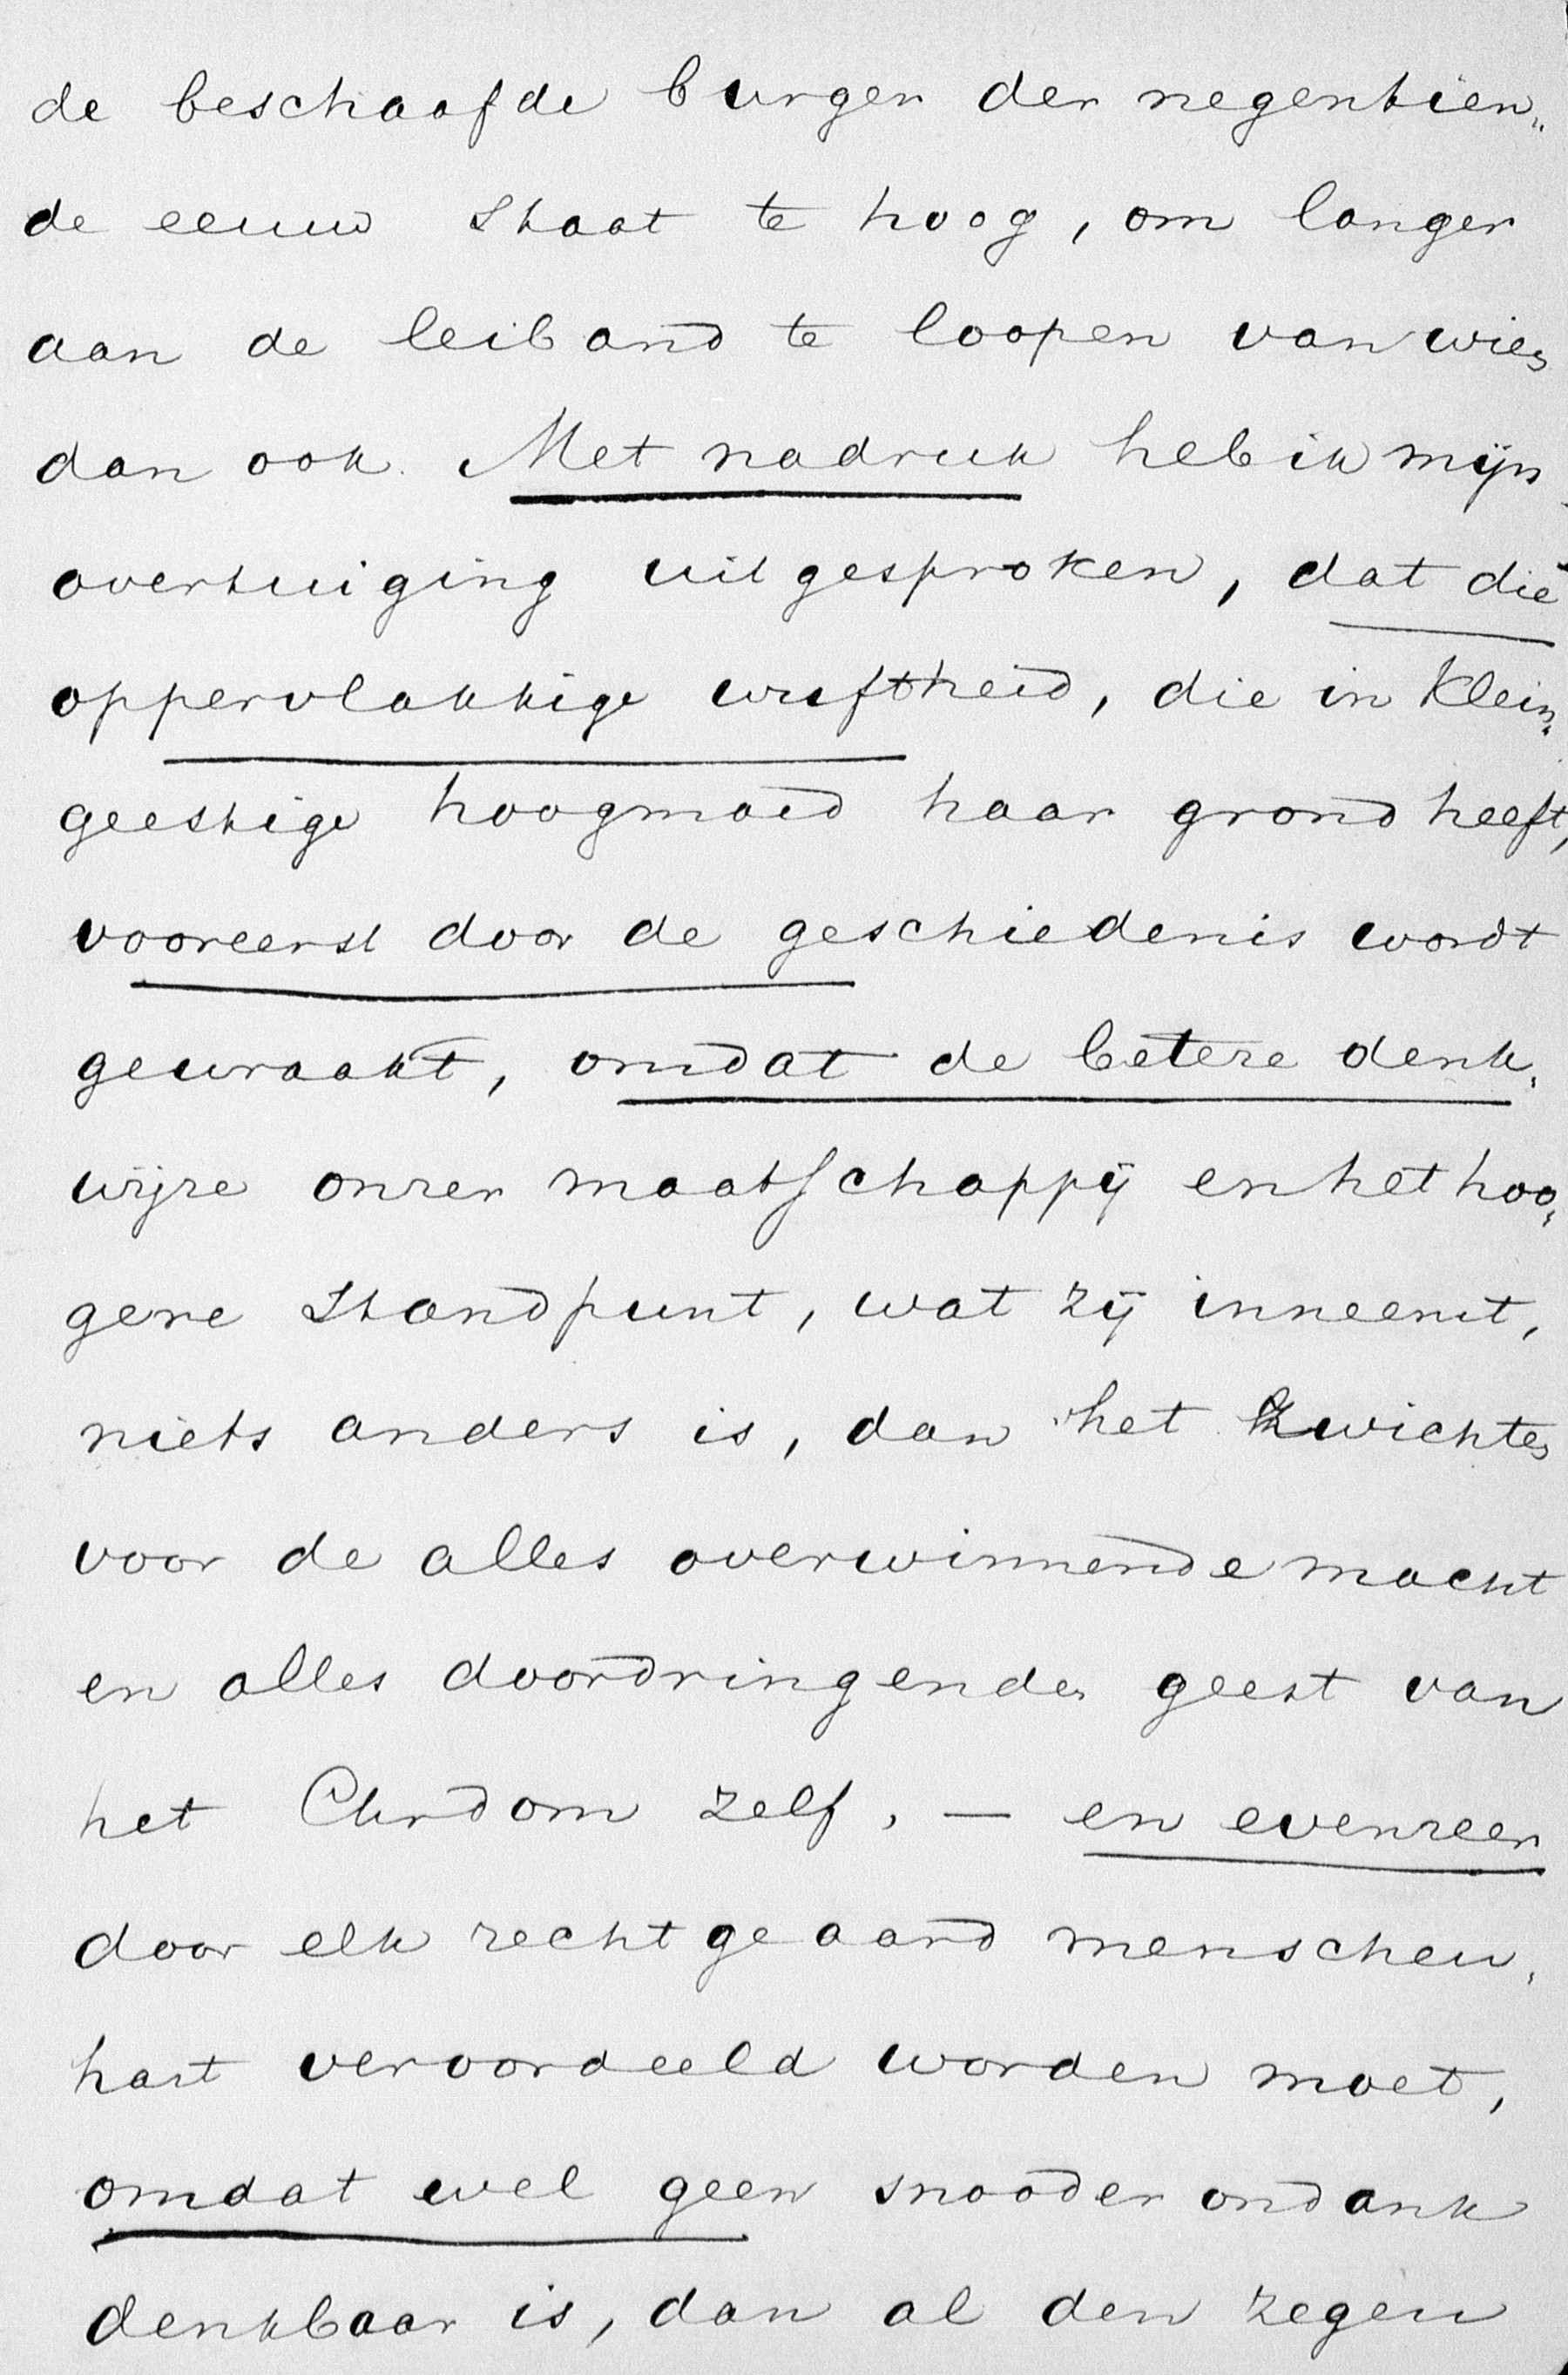 de beschaafde burger der negentien„
de eeuw staat te hoog, om langer
aan de leiband te loopen van wien
dan ook. Met nadruk heb ik mijn
overtuiging uitgesproken, dat die
oppervlakkige wuftheid, die in klein„
geestige hoogmoed haar grond heeft,
vooreerst door de geschiedenis wordt
gewraakt, omdat de betere denk„
wijze onzer maatschappij en het hoo„
gere standpunt, wat zij inneemt,
niets anders is, dan het zwichten
voor de alles overwinnende macht
en alles doordringenden geest van
het Chrdom zelf, — en evenzeer
door elk rechtgeaard menschen„
hart veroordeeld worden moet,
omdat wel geen snooder ondank
denkbaar is, dan al den zegen